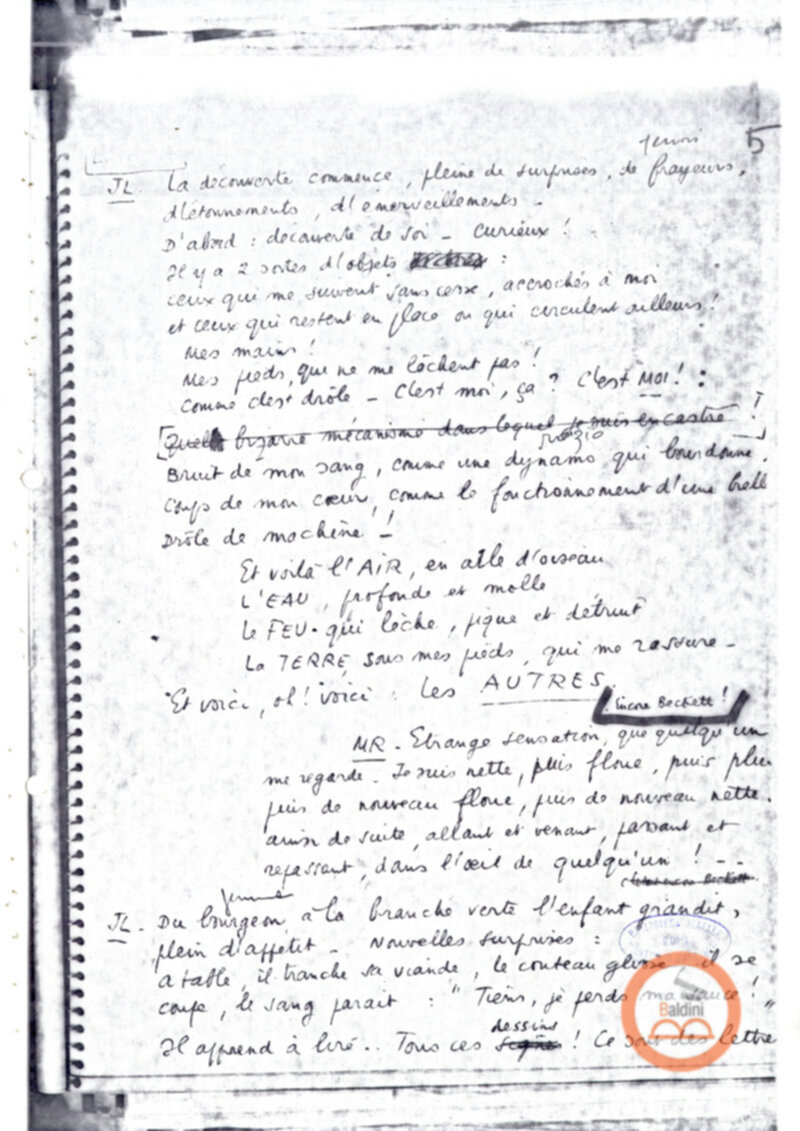 5
JL. La découverte commence, pleine de surprises, de frayeurs,
d'étonnements, d'émerveillements -
D'abord : découverte de soi - Curieux !
Il y a 2 sortes d'objets :
ceux qui me suivent sans cesse, accrochés à moi
et ceux qui restent en place ou qui circulent ailleurs !
Mes mains !
Mes pieds, que ne me lâchent pas !
Comme c'est drôle - C'est moi, ça ? C'est MOI ! :
[Quelle bizarre mécanisme dans lequel je suis encastré !]
Bruit de mon sang, comme une dynamo qui bourdonne.
Coups de mon cœur, comme le fonctionnement d'une biell
Drôle de machine !
Et voilà l'AIR, en aile d'oiseau
L'EAU, profonde et molle
Le FEU - qui lèche, pique et détruit
La TERRE, sous mes pieds, qui me rassure -
Et voici, oh ! voici : les AUTRES.
! Encore Beckett !
MR - Etrange sensation, que quelqu'un
me regarde. Je suis nette, puis floue, puis plu
puis de nouveau floue, puis de nouveau nette.
ainsi de suite, allant et venant, passant et
repassant, dans l'œil de quelqu'un ! - -
encore Beckett
JL. Du bourgeon, à la branche verte l'enfant grandit,
plein d'appétit - Nouvelles surprises :
à table, il tranche sa viande, le couteau glisse il se
coupe, le sang paraît : " Tiens, je perds ma sauce ! "
Il apprend à lire .. Tous ces dessins ! Ce sont des lettre
Baldini